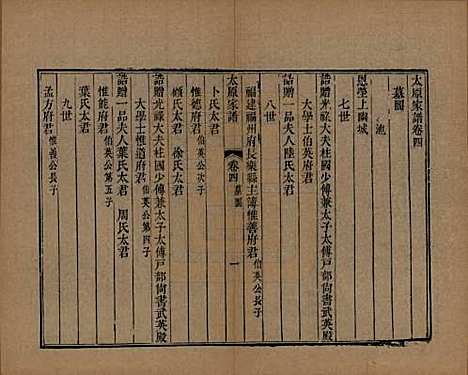 太原家譜卷四
墓圖
恩榮上關城
七世
誥贈光祿大夫柱國少傅兼太子太傅戶部尚書武英殿
大學士伯英府君
誥贈一品夫人陸氏太君
八世
福建福州府長樂縣主簿惟善府君伯英公長子
太原家譜 卷四 墓圖 一
卜氏太君
惟德府君伯英公次子
顧氏太君 徐氏太君
誥贈光祿大夫柱國少傅兼太子太傅戶部尚書武英殿
大學士惟道府君伯英公第四子
誥贈一品夫人葉氏太君 周氏太君
惟能府君伯英公第五子
葉氏太君
九世
孟方府君惟善公長子